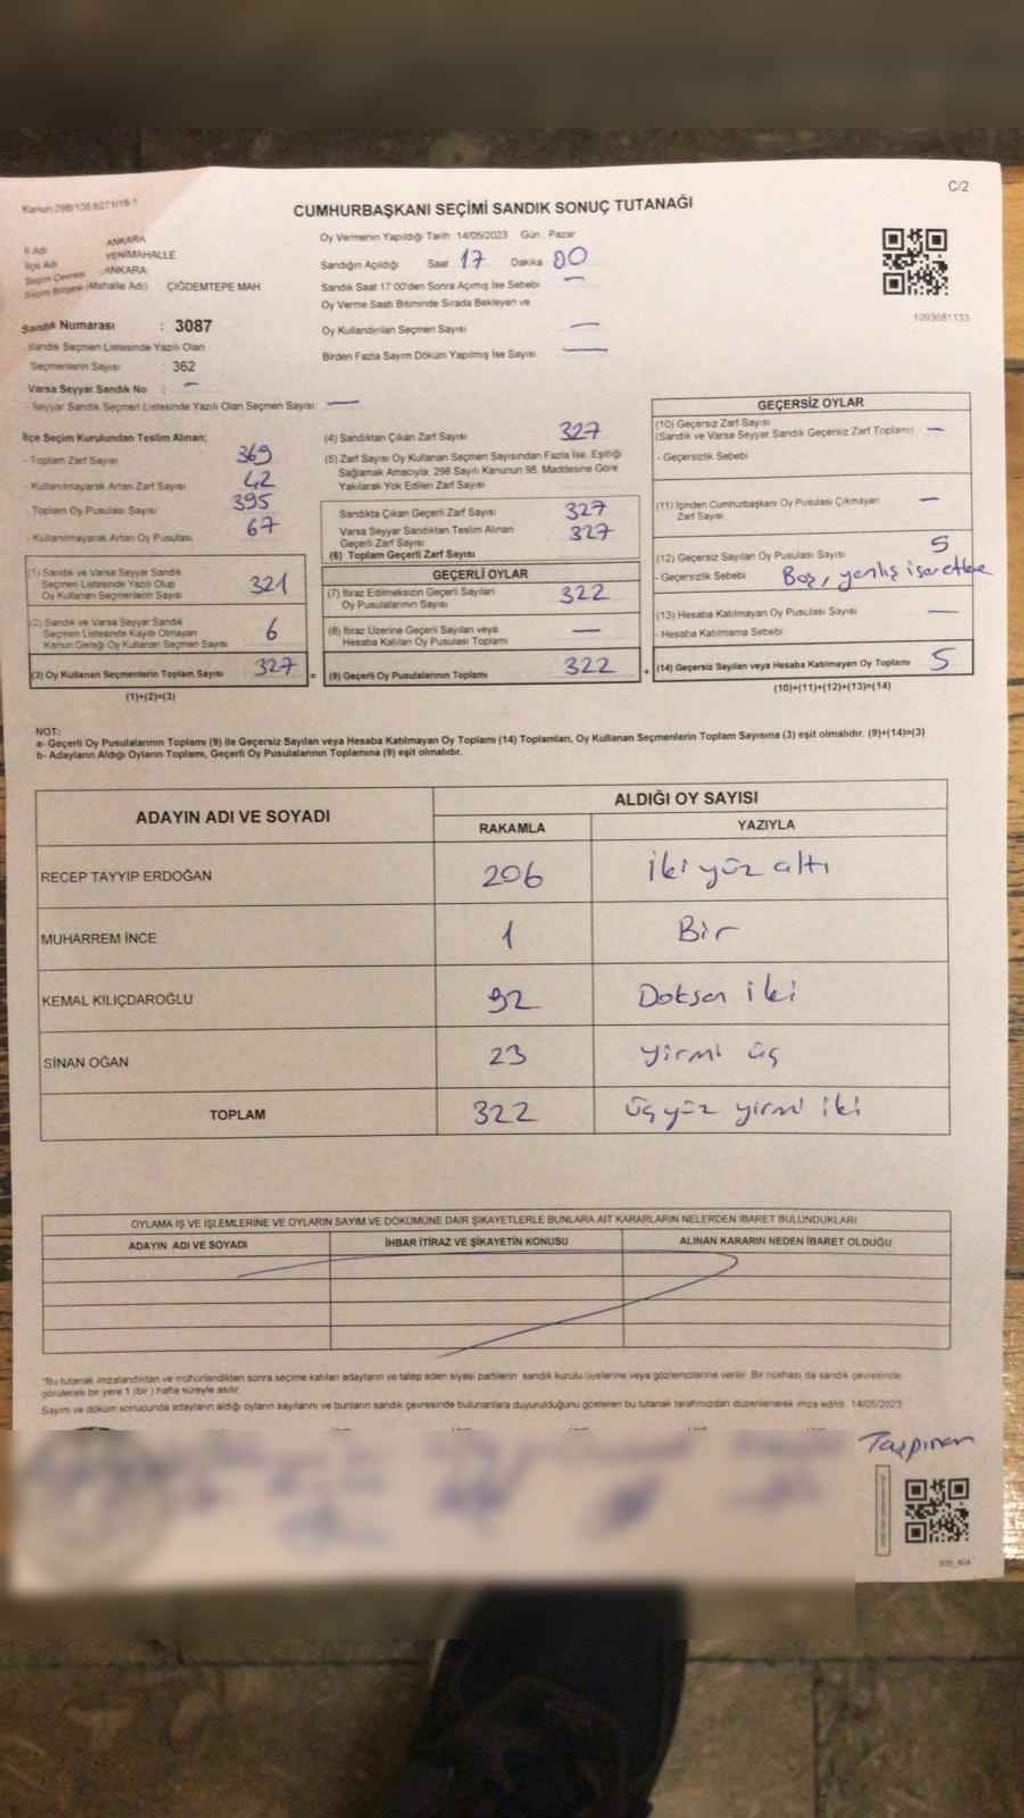 C/2
Kanun 298/105
CUMHURBAŞKANI SEÇİMİ SANDIK SONUÇ TUTANAĞI
İl Adı ANKARA
İlçe Adı YENİMAHALLE
Seçim Çevresi ANKARA
Seçim Bölgesi (Mahalle Adı) ÇİĞDEMTEPE MAH.
Oy Vermenin Yapıldığı Tarih: 14/05/2023 Gün: Pazar
Sandığın Açıldığı Saat 17 Dakika 00
Sandık Saat 17:00'den Sonra Açımış İse Sebebi —
Oy Verme Saati Bitiminde Sırada Bekleyen ve
Oy Kullandırılan Seçmen Sayısı —
Birden Fazla Sayım Döküm Yapılmış İse Sayısı —
1093081133
Sandık Numarası : 3087
Sandık Seçmen Listesinde Yazılı Olan
Seçmenlerin Sayısı : 362
Varsa Seyyar Sandık No : —
- Seyyar Sandık Seçmen Listesinde Yazılı Olan Seçmen Sayısı: —
İlçe Seçim Kurulundan Teslim Alınan;
- Toplam Zarf Sayısı 369
- Kullanılmayarak Artan Zarf Sayısı 42
- Toplam Oy Pusulası Sayısı 395
- Kullanılmayarak Artan Oy Pusulası 67
(1) Sandık ve Varsa Seyyar Sandık
Seçmen Listesinde Yazılı Olup
Oy Kullanan Seçmenlerin Sayısı 321
(2) Sandık ve Varsa Seyyar Sandık
Seçmen Listesinde Kayıtlı Olmayan
Kanun Gereği Oy Kullanan Seçmen Sayısı 6
(3) Oy Kullanan Seçmenlerin Toplam Sayısı 327 =
(1)+(2)=(3)
(4) Sandıktan Çıkan Zarf Sayısı 327
(5) Zarf Sayısı Oy Kullanan Seçmen Sayısından Fazla İse, Eşitliği
Sağlamak Amacıyla, 298 Sayılı Kanunun 98. Maddesine Göre
Yakılarak Yok Edilen Zarf Sayısı
Sandıkta Çıkan Geçerli Zarf Sayısı 327
Varsa Seyyar Sandıktan Teslim Alınan
Geçerli Zarf Sayısı 327
(6) Toplam Geçerli Zarf Sayısı
GEÇERLİ OYLAR
(7) İtiraz Edilmeksizin Geçerli Sayılan
Oy Pusulalarının Sayısı 322
(8) İtiraz Üzerine Geçerli Sayılan veya
Hesaba Katılan Oy Pusulası Toplamı —
(9) Geçerli Oy Pusulalarının Toplamı 322 +
GEÇERSİZ OYLAR
(10) Geçersiz Zarf Sayısı
(Sandık ve Varsa Seyyar Sandık Geçersiz Zarf Toplamı) —
- Geçersizlik Sebebi
(11) İçinden Cumhurbaşkanı Oy Pusulası Çıkmayan
Zarf Sayısı —
(12) Geçersiz Sayılan Oy Pusulası Sayısı 5
- Geçersizlik Sebebi Boş, yanlış işaretleme
(13) Hesaba Katılmayan Oy Pusulası Sayısı —
- Hesaba Katılmama Sebebi
(14) Geçersiz Sayılan veya Hesaba Katılmayan Oy Toplamı 5
(10)+(11)+(12)+(13)=(14)
NOT:
a- Geçerli Oy Pusulalarının Toplamı (9) ile Geçersiz Sayılan veya Hesaba Katılmayan Oy Toplamı (14) Toplamları, Oy Kullanan Seçmenlerin Toplam Sayısına (3) eşit olmalıdır. (9)+(14)=(3)
b- Adayların Aldığı Oyların Toplamı, Geçerli Oy Pusulalarının Toplamına (9) eşit olmalıdır.
ADAYIN ADI VE SOYADI ALDIĞI OY SAYISI
RAKAMLA YAZIYLA
RECEP TAYYİP ERDOĞAN 206 İki yüz altı
MUHARREM İNCE 1 Bir
KEMAL KILIÇDAROĞLU 92 Doksan iki
SİNAN OĞAN 23 yirmi üç
TOPLAM 322 üç yüz yirmi iki
OYLAMA İŞ VE İŞLEMLERİNE VE OYLARIN SAYIM VE DÖKÜMÜNE DAİR ŞİKAYETLERLE BUNLARA AİT KARARLARIN NELERDEN İBARET BULUNDUKLARI
ADAYIN ADI VE SOYADI İHBAR İTİRAZ VE ŞİKAYETİN KONUSU ALINAN KARARIN NEDEN İBARET OLDUĞU
"Bu tutanak imzalandıktan ve mühürlendikten sonra seçime katılan adayların ve talep eden siyasi partilerin sandık kurulu üyelerine veya gözlemcilerine verilir. Bir nüshası da sandık çevresinde
görülecek bir yere 1 (bir) hafta süreyle asılır.
Sayım ve döküm sonucunda adayların aldığı oyların sayılarını ve bunların sandık çevresinde bulunanlara duyurulduğunu gösteren bu tutanak tarafımızdan düzenlenerek imza edildi. 14/05/2023
Taşpınar